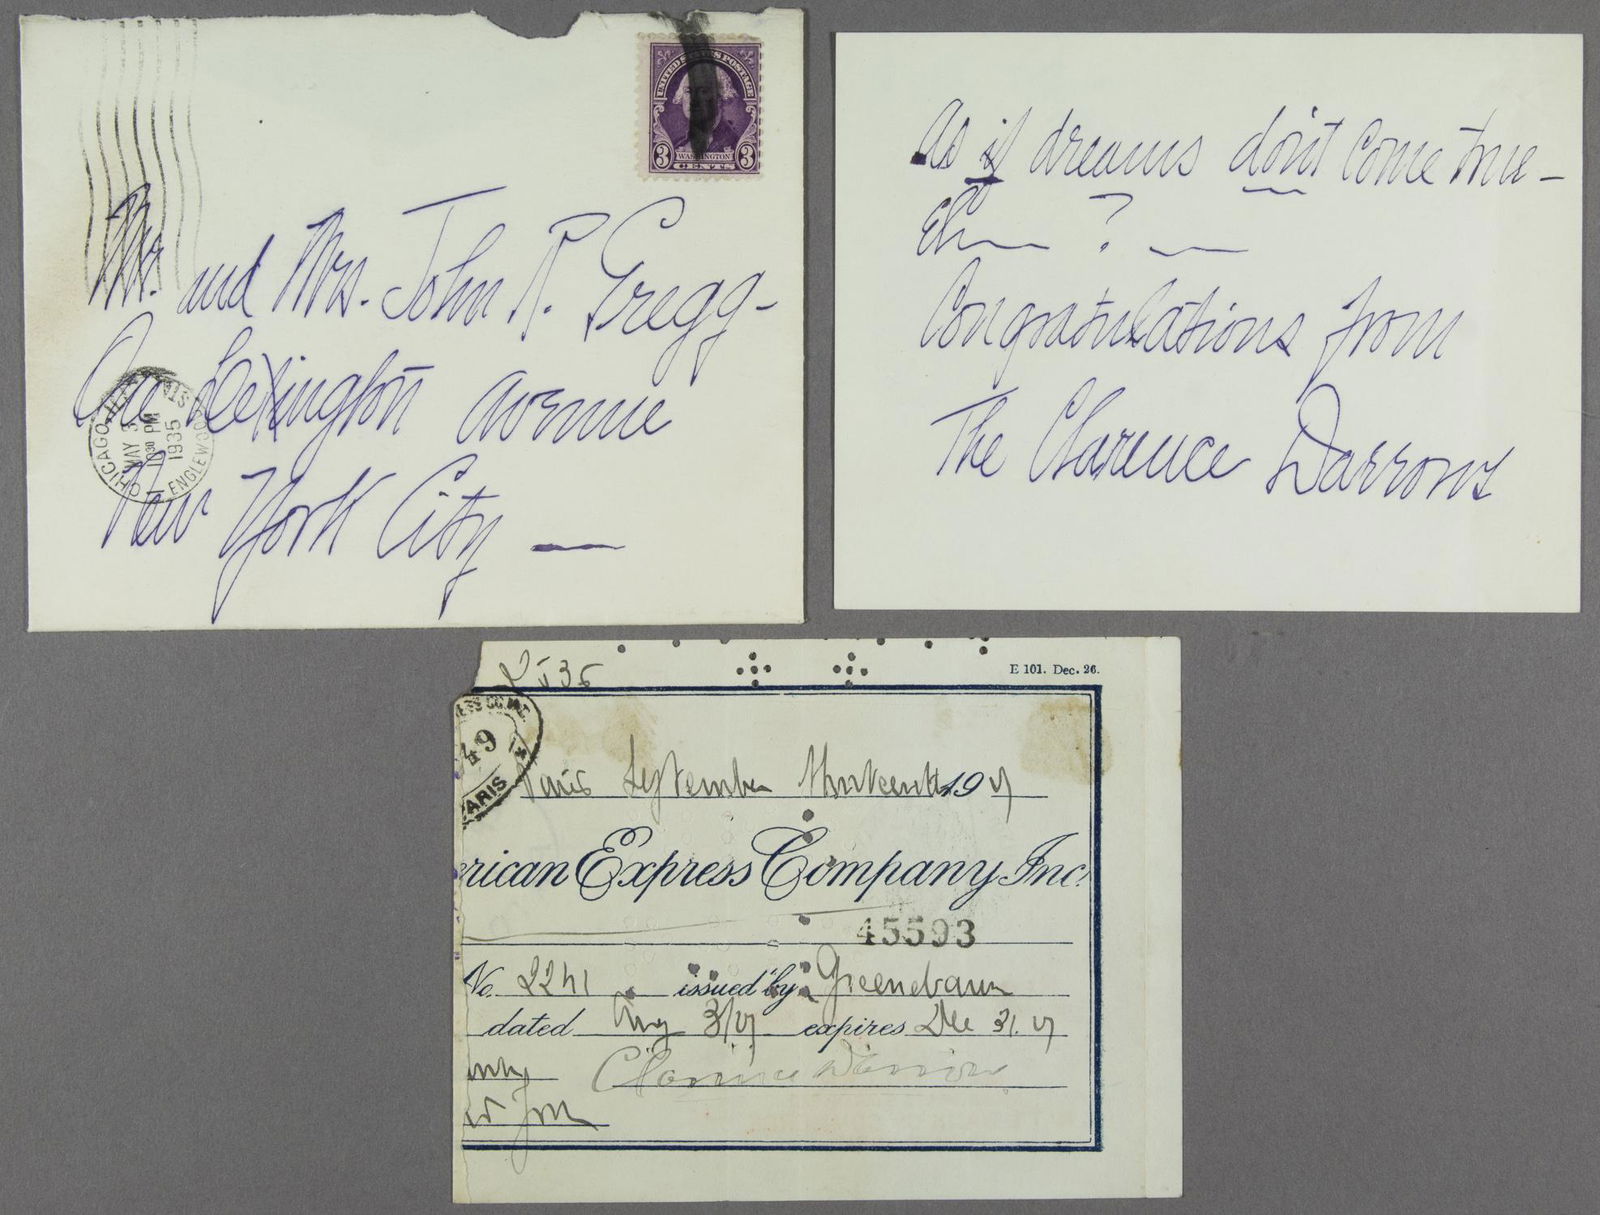 UNITED STATES POSTAGE
3 WASHINGTON 3
CENTS
CHICAGO, ILL.
MAY 3
PM
1935
ENGLEWOOD STA
Mr. and Mrs. John R. Gregg-
One Lexington Avenue
New York City —
As if dreams don't come true –
Eh — ? —
Congratulations from
The Clarence Darrows
E 101. Dec. 26.
49
PARIS
Paris September thirteenth 1927
rican Express Company, Inc.
45593
No. 2241 issued by Greenebaum
dated Aug 3/27 expires Dec 31. 27
Clarence Darrow